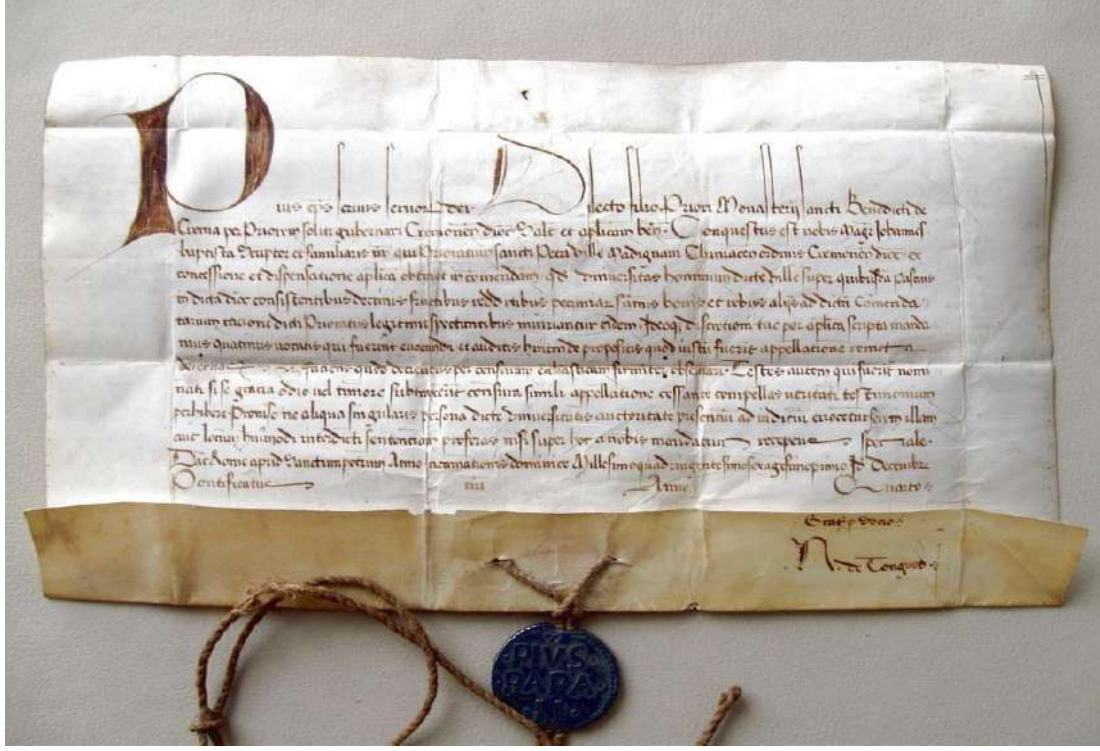 Pius eps servus servor dei Dilecto filio Priori Monasterii sancti Benedicti de
Crema per Priorem soliti gubernari Cremonen dioc Salt et aplicam ben. Conquestus est nobis Magr Johannes
baptista scriptor et familiaris nr qui Prioratum sancti Petri ville Madignani Cluniacen ordinis Cremonen dioc ex
concessione et dispensatione aplica obtinet in comendam qd universitas hominum dicte ville super quibusdam
in dicta dioc consistentibus decimis fructibus redditibus pecuniar sumis bonis et rebus aliis ad dictu Comenda
tarium ratione dicti Prioratus legitime spectantibus iniuriantur eidem Ideoq discretioni tue per aplica scripta manda
mus quatinus vocatis qui fuerint evocandi et auditis hincinde propositis quod iustu fuerit appellatione remota
decernas faciens quod decreveris per censuram ecclesiasticam firmiter observari. Testes autem qui fuerint nomi
nati si se gracia odio vel timore subtraxerint censura simili appellatione cessante compellas veritati testimonium
perhibere Proviso ne aliqua singularis persona dicte universitatis auctoritate presentium ad iudiciu evocetur seu in illam
aut locum huiusmodi interdicti sententiam proferas nisi super hoc a nobis mandatum receperis speciale.
Dat Rome apud Sanctumpetrum Anno incarnationis dominice Millesimoquadringentesimosexagesimoprimo Id Decembr
Pontificatus nri Anno Quarto
N. de Tongues
PIVS
PAPA
II